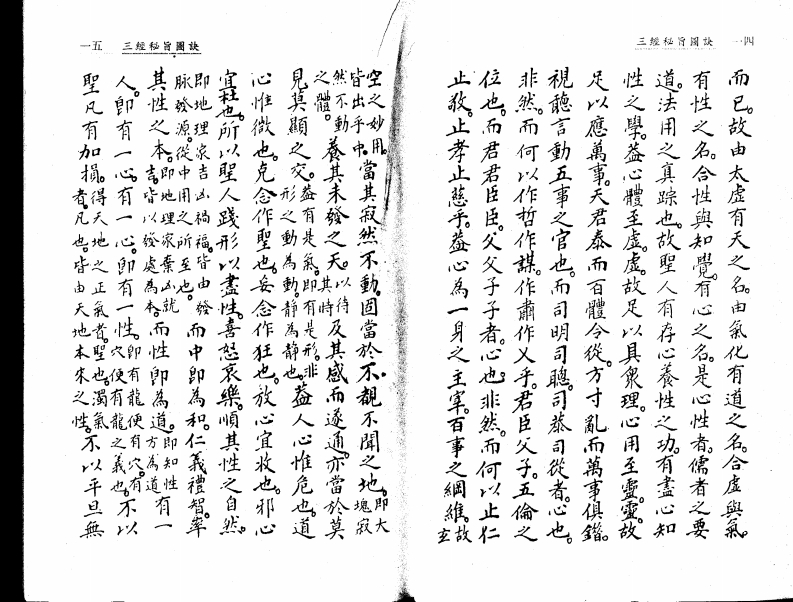 三經秘旨圖訣
一四
而已。故由太虛有天之名。由氣化有道之名。合虛與氣。
有性之名。合性與知覺。有心之名。是心性者。儒者之要
道。法用之真踪也。故聖人有存心養性之功。有盡心知
性之學。蓋心體至虛。虛故足以具衆理。心用至靈。靈故
足以應萬事。天君泰而百體令從。方寸亂而萬事俱錯。
視聽言動五事之官也。而司明司聰。司恭司從者。心也。
非然。而何以作哲作謀。作肅作乂乎。君臣父子。五倫之
位也。而君君臣臣。父父子子者。心也。非然。而何以止仁
止敬。止孝止慈乎。蓋心為一身之主宰。百事之綱維。故玄
三經秘旨圖訣
一五
空之妙用。皆出乎中。當其寂然不動。固當於不覩不聞之地。即大塊寂
然不動之體。養其未發之天。以待其時及其感而遂通。亦當於莫
見莫顯之交。蓋有是氣。即有是形。非形之動為動。靜為靜也。蓋人心惟危也。道
心惟微也。克念作聖也。妄念作狂也。放心宜收也。邪心
宜杜也。所以聖人踐形以盡性。喜怒哀樂。順其性之自然。
即地理家吉凶禍福。皆由發脉發源。從中用之所至也。而中即為和。仁義禮智。率
其性之本。即地理家棄凶就吉。皆以發處為本。而性即為道。即知性方為道有一
人。即有一心。有一心。即有一性。即有龍便有穴。有穴便有龍之義也。不以
聖凡有加損。得天地之正氣者。聖也。濁氣者。凡也。皆由天地本來之性。不以平旦無